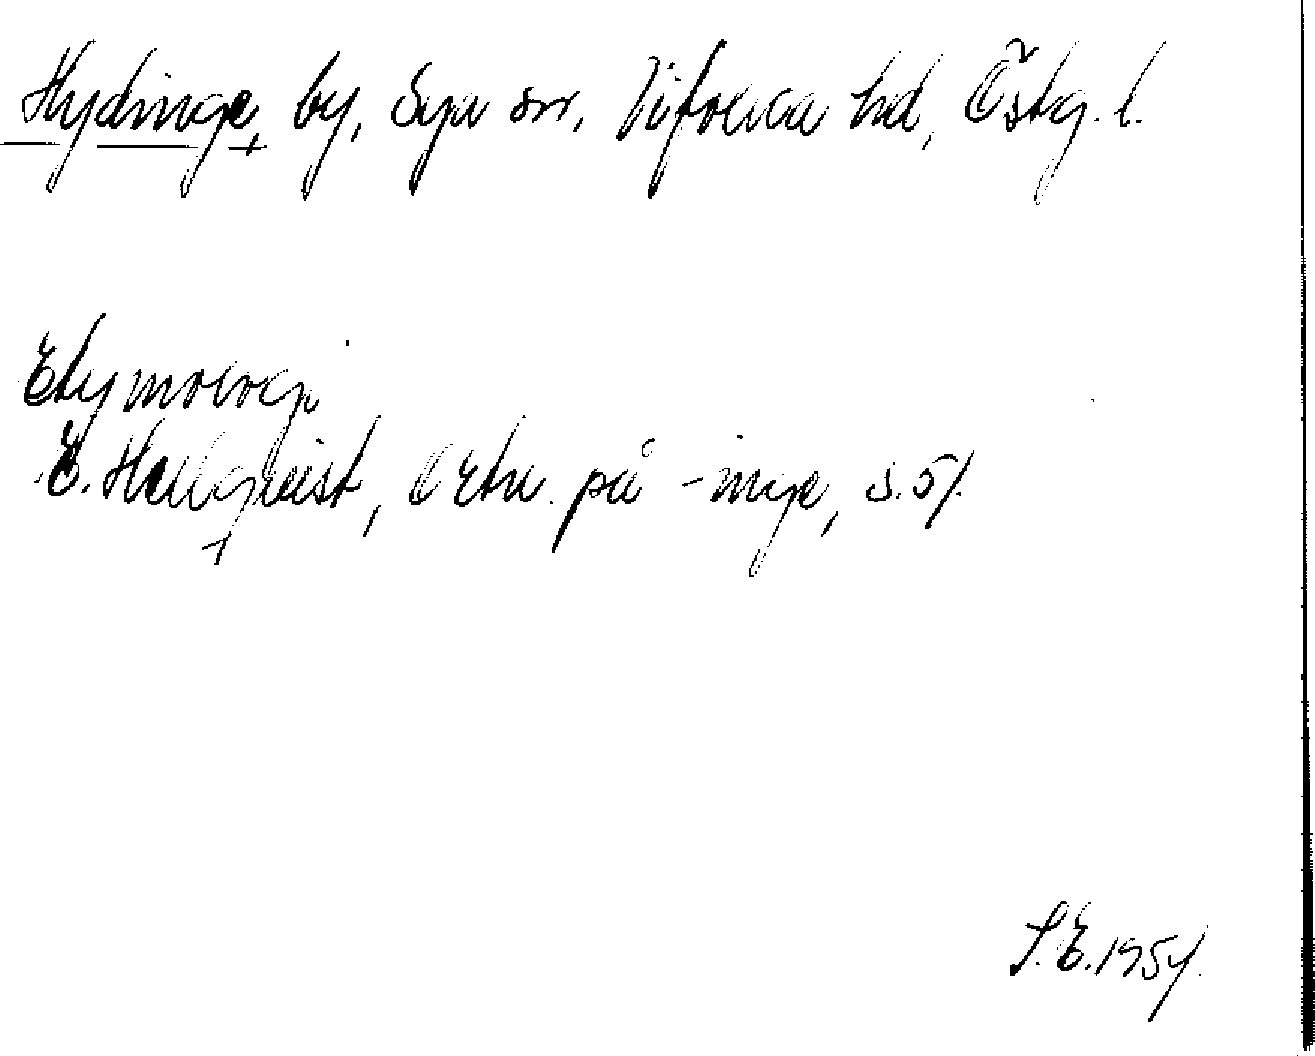 Hydinge, by, Sya sn, Vifolka hd, Östg. l.
Etymologi
E. Hellquist, Ortn. på -inge, s. 57.
S.E. 1954.